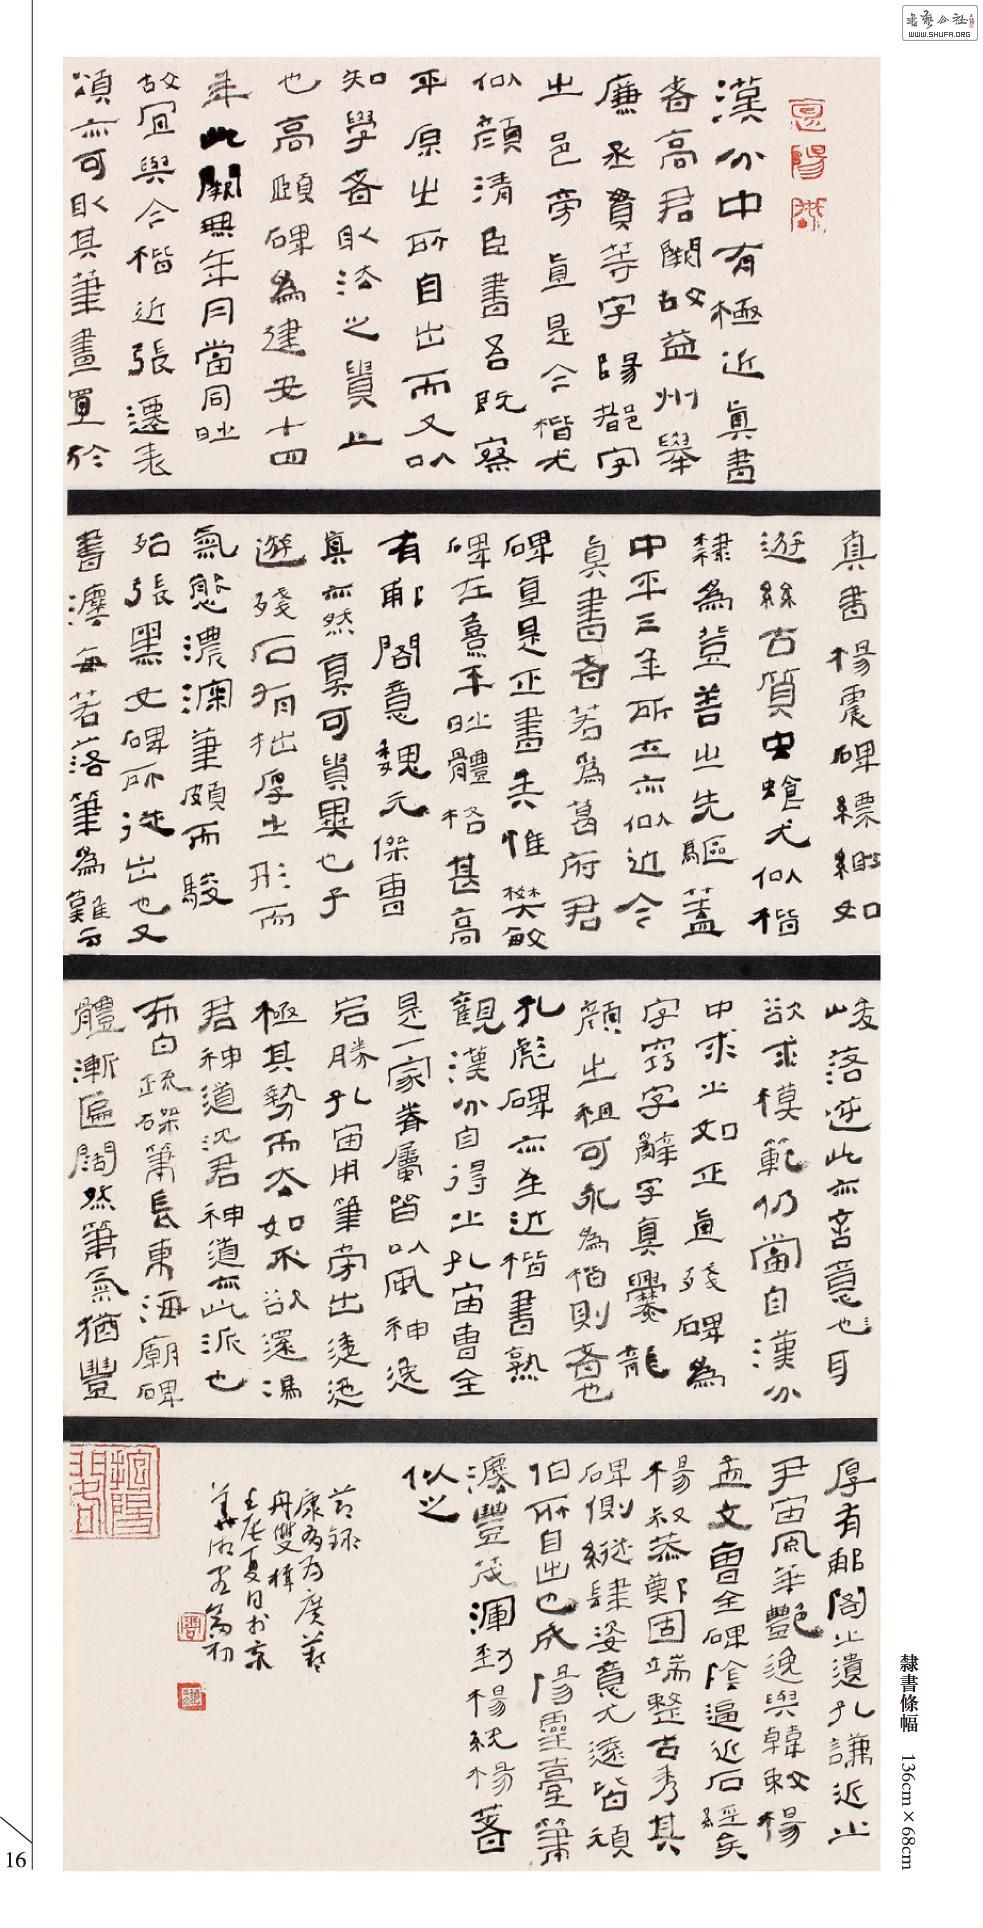 漢分中有極近真書
者高君闕故益州舉
廉丞貫等字陽都字
之邑旁真是今楷尤
似顏清臣書吾既察
平原之所自出而又以
知學者取法之貴上
也高頤碑為建安十四
年此闕無年月當同時
故宜與今楷近張遷表
頌亦可取其筆畫置於
真書楊震碑縹緲如
遊絲古質虫蝕尤似楷
隸為登善之先驅蓋
中平三年所立亦似近今
真書者若為葛府君
碑直是正書矣惟樊敏
碑在熹平時體格甚高
有郙閣意魏元儁曹
真亦然真可貴異也子
遊殘石有拙厚之形而
氣態濃深筆頗而駿
殆張黑女碑所從出也又
書灋每若落筆為難云
峻落逆此亦章意也耳
欲求模範仍當自漢分
中求之如正直殘碑為
字窈字辭字真爨龍
顏之祖可永為楷則者也
孔彪碑亦至近楷書熟
觀漢分自得之孔宙曹全
是一家眷屬皆以風神逸
宕勝孔宙用筆旁出逶迤
極其勢而去如不欲還馮
君神道沈君神道亦此派也
布白疏磔筆長東海廟碑
體漸匾闊然筆氣猶豐
厚有郙閣之遺孔謙近之
尹宙風華艷逸與韓敕楊
孟文曹全碑陰逼近石經矣
楊叔恭鄭固端整古秀其
碑側縱肆姿意尤遠皆頑
伯所自出也成陽靈臺筆
灋豐茂渾勁楊統楊著
似之
節錄
康有為廣藝
舟雙楫
壬辰夏日於京
隸書條幅 136cm×68cm
16
WWW.SHUFA.ORG